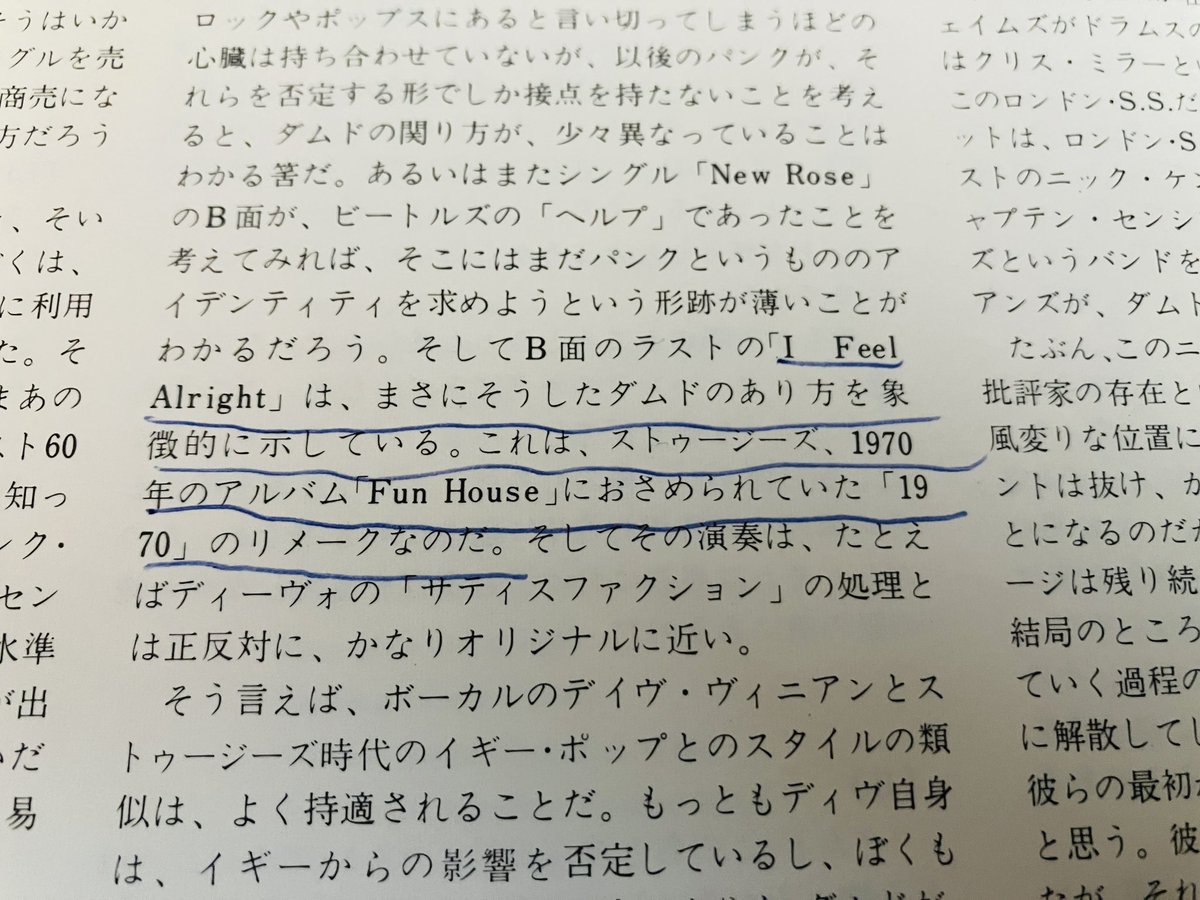 そうはいか
グルを売
商売にな
方だろう
、そい
くは、
に利用
た。そ
まあの
スト60
知っ
ンク・
セン
水準
が出
いだ
易
ロックやポップスにあると言い切ってしまうほどの
心臓は持ち合わせていないが、以後のパンクが、そ
れらを否定する形でしか接点を持たないことを考え
ると、ダムドの関り方が、少々異なっていることは
わかる筈だ。あるいはまたシングル「New Rose」
のB面が、ビートルズの「ヘルプ」であったことを
考えてみれば、そこにはまだパンクというもののア
イデンティティを求めようという形跡が薄いことが
わかるだろう。そしてB面のラストの「I Feel
Alright」は、まさにそうしたダムドのあり方を象
徴的に示している。これは、ストゥージーズ、1970
年のアルバム「Fun House」におさめられていた「19
70」のリメークなのだ。そしてその演奏は、たとえ
ばディーヴォの「サティスファクション」の処理と
は正反対に、かなりオリジナルに近い。
そう言えば、ボーカルのデイヴ・ヴィニアンとス
トゥージーズ時代のイギー・ポップとのスタイルの類
似は、よく持適されることだ。もっともディヴ自身
は、イギーからの影響を否定しているし、ぼくも
ェイムズがドラムスの
はクリス・ミラーとい
このロンドン・S.S.だ
ットは、ロンドン・S
ストのニック・ケン
ャプテン・センシ
ズというバンドを
アンズが、ダムド
たぶん、このニ
批評家の存在と
風変りな位置に
ントは抜け、か
とになるのだだ
ージは残り続
結局のところ
ていく過程の
に解散してし
彼らの最初
と思う。彼
たが、それ